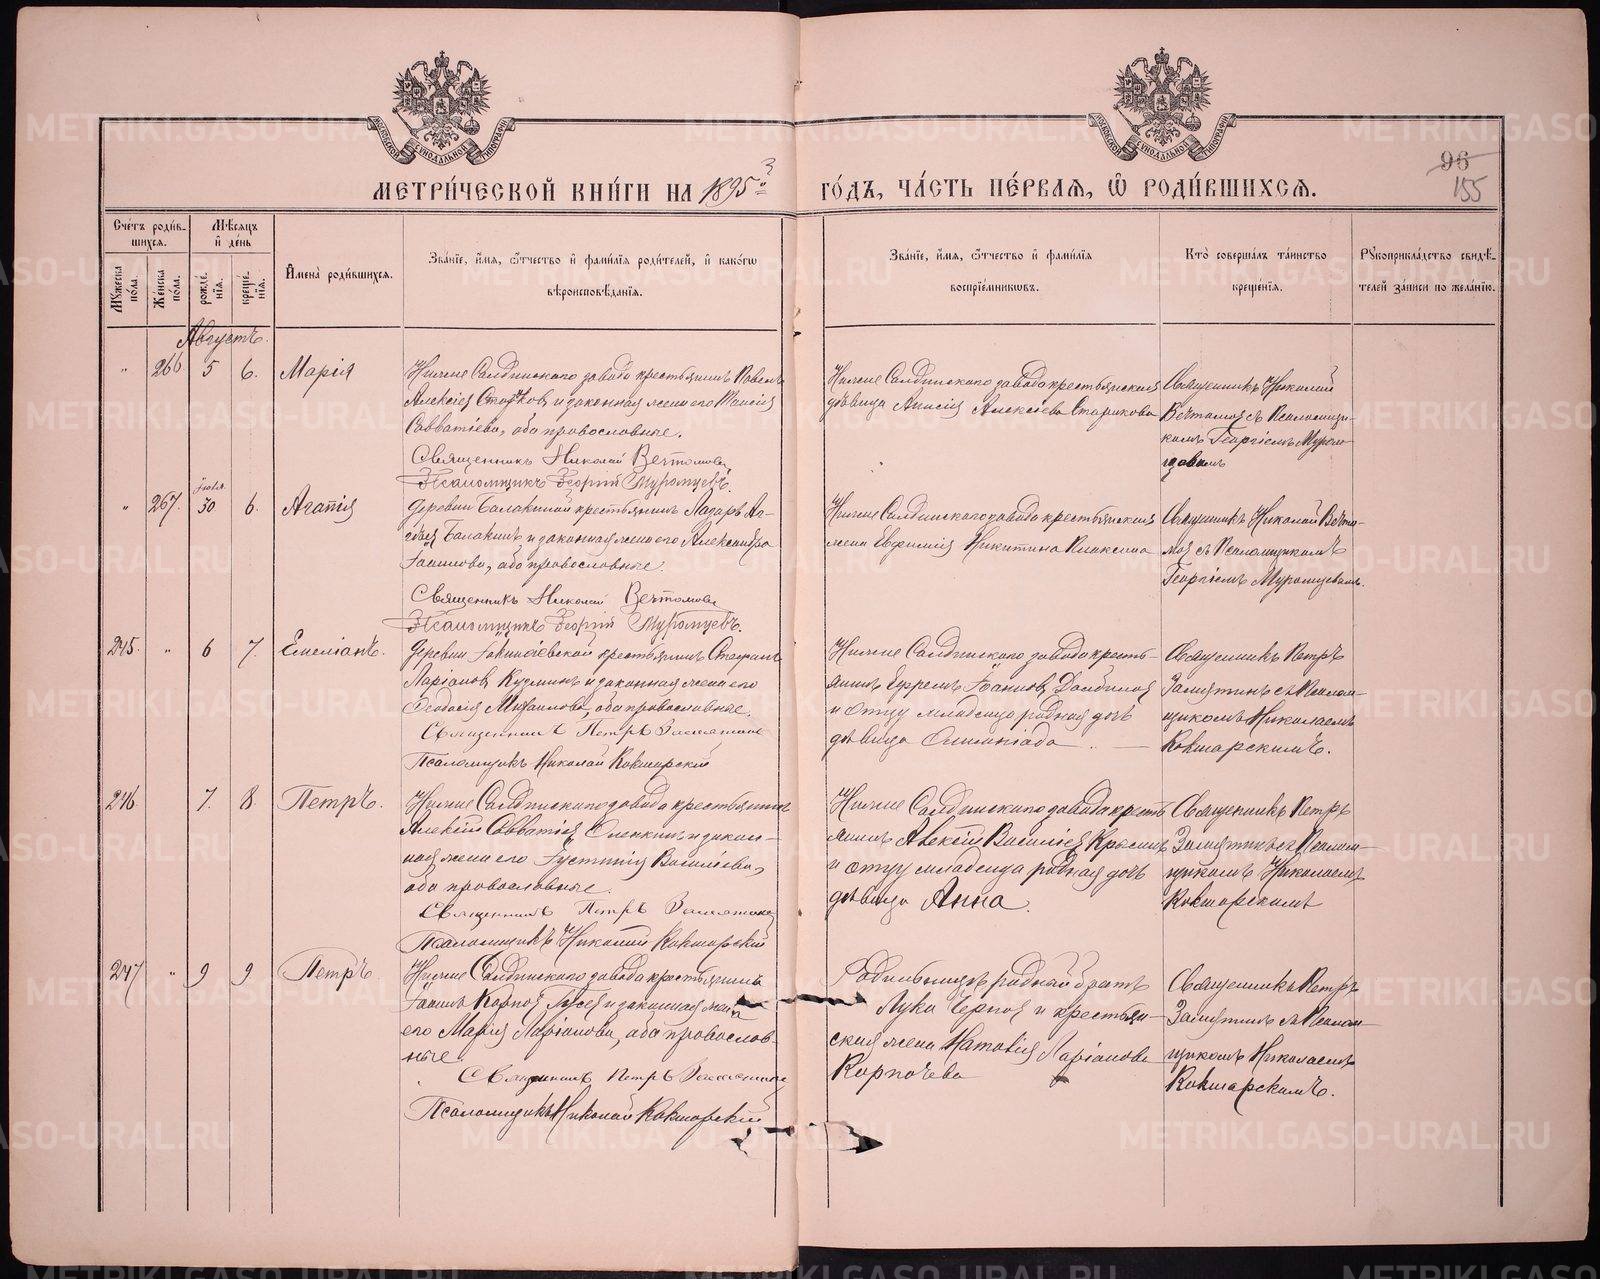 МОСКОВСКОЙ СУНОДАЛЬНОЙ ТИПОГРАФІИ
МОСКОВСКОЙ СУНОДАЛЬНОЙ ТИПОГРАФІИ
96
155
МЕТРИ́ЧЕСКОЙ КНИ́ГИ НА 1895 3 ГО́ДЪ, ЧА́СТЬ ПЕ́РВАѦ, Ѽ РОДИ́ВШИХСѦ.
Сче́тъ роди́в-
шихсѧ.
Мѣ́сѧцъ
и де́нь
Мꙋ́жеска
по́ла.
Же́нска
по́ла.
рожде́-
нїѧ.
креще́-
нїѧ.
И҆мена̀ роди́вшихсѧ.
Зва́нїе, и҆́мѧ, ѻ҆́тчество и҆ фами́лїѧ роди́телей, и҆ како́гѡ
вѣроисповѣ́данїѧ.
Зва́нїе, и҆́мѧ, ѻ҆́тчество и҆ фами́лїѧ
воспрїе́мникѡвъ.
Кто̀ соверша́лъ та́инство
креще́нїѧ.
Рꙋкоприкла́дство свидѣ́-
телей за́писи по жела́нїю.
Августъ.
" 266 5 6. Марія
Нижне Салдинскаго завода крестьянинъ Павелъ
Алексіев Стариков и законная жена его Таисія
Савватіева, оба православные.
Священникъ Николай Вечтомовъ
Псаломщикъ Георгій Муромцевъ.
Нижне Салдинскаго завода крестьянская
дѣвица Анисія Алексіева Старикова
Священникъ Николай
Вечтомов съ Псаломщи-
комъ Георгіемъ Муром-
цевымъ
" 267. Іюля 30 6. Агапія
Деревни Балакиной крестьянинъ Лазарь Аг-
Балакинъ и законная жена его Александра
Іоаннова, оба православные.
Священникъ Николай Вечтомовъ
Псаломщикъ Георгій Муромцевъ.
Нижне Салдинскаго завода крестьянская
жена Евфимія Никитина Плаксина
Священникъ Николай Вечто-
мов съ Псаломщикомъ
Георгіемъ Муромцевымъ.
245. " 6 7 Емеліанъ.
Деревни крестьянинъ Стефанъ
Ларіонов Кузминъ и законная жена его
Феодосія Михаилова, оба православные.
Священникъ Петръ Замятинъ
Псаломщикъ Николай Кокшарскій
Нижне Салдинскаго завода кресть-
янинъ Ефремъ Іоаннов
и отцу младенца родная дочь
дѣвица Олимпіада
Священникъ Петръ
Замятинъ съ Псалом-
щикомъ Николаемъ
Кокшарскимъ.
246. 7. 8. Петръ.
Нижне Салдинскаго завода крестьянинъ
Алексій Савватіев и закон-
ная жена его Іустинія Василіева,
оба православные.
Священникъ Петръ Замятинъ
Псаломщикъ Николай Кокшарскій
Нижне Салдинскаго завода кресть
янинъ Василіев
и отцу младенца родная дочь
дѣвица Анна.
Священникъ Петръ
Замятинъ съ Псалом-
щикомъ Николаемъ
Кокшарскимъ
247 " 9 9 Петръ
Нижне Салдинскаго завода крестьянинъ
Іоаннъ Карпов Гусев и законная жена
его Марія Ларіонова, оба православ-
ные.
Священникъ Петръ Замятинъ
Псаломщикъ Николай Кокшарскій
родной братъ
Лука и крестьян-
ская жена Наталія Ларіонова
Карпочева
Священникъ Петръ
Замятинъ съ Псалом-
щикомъ Николаемъ
Кокшарскимъ.